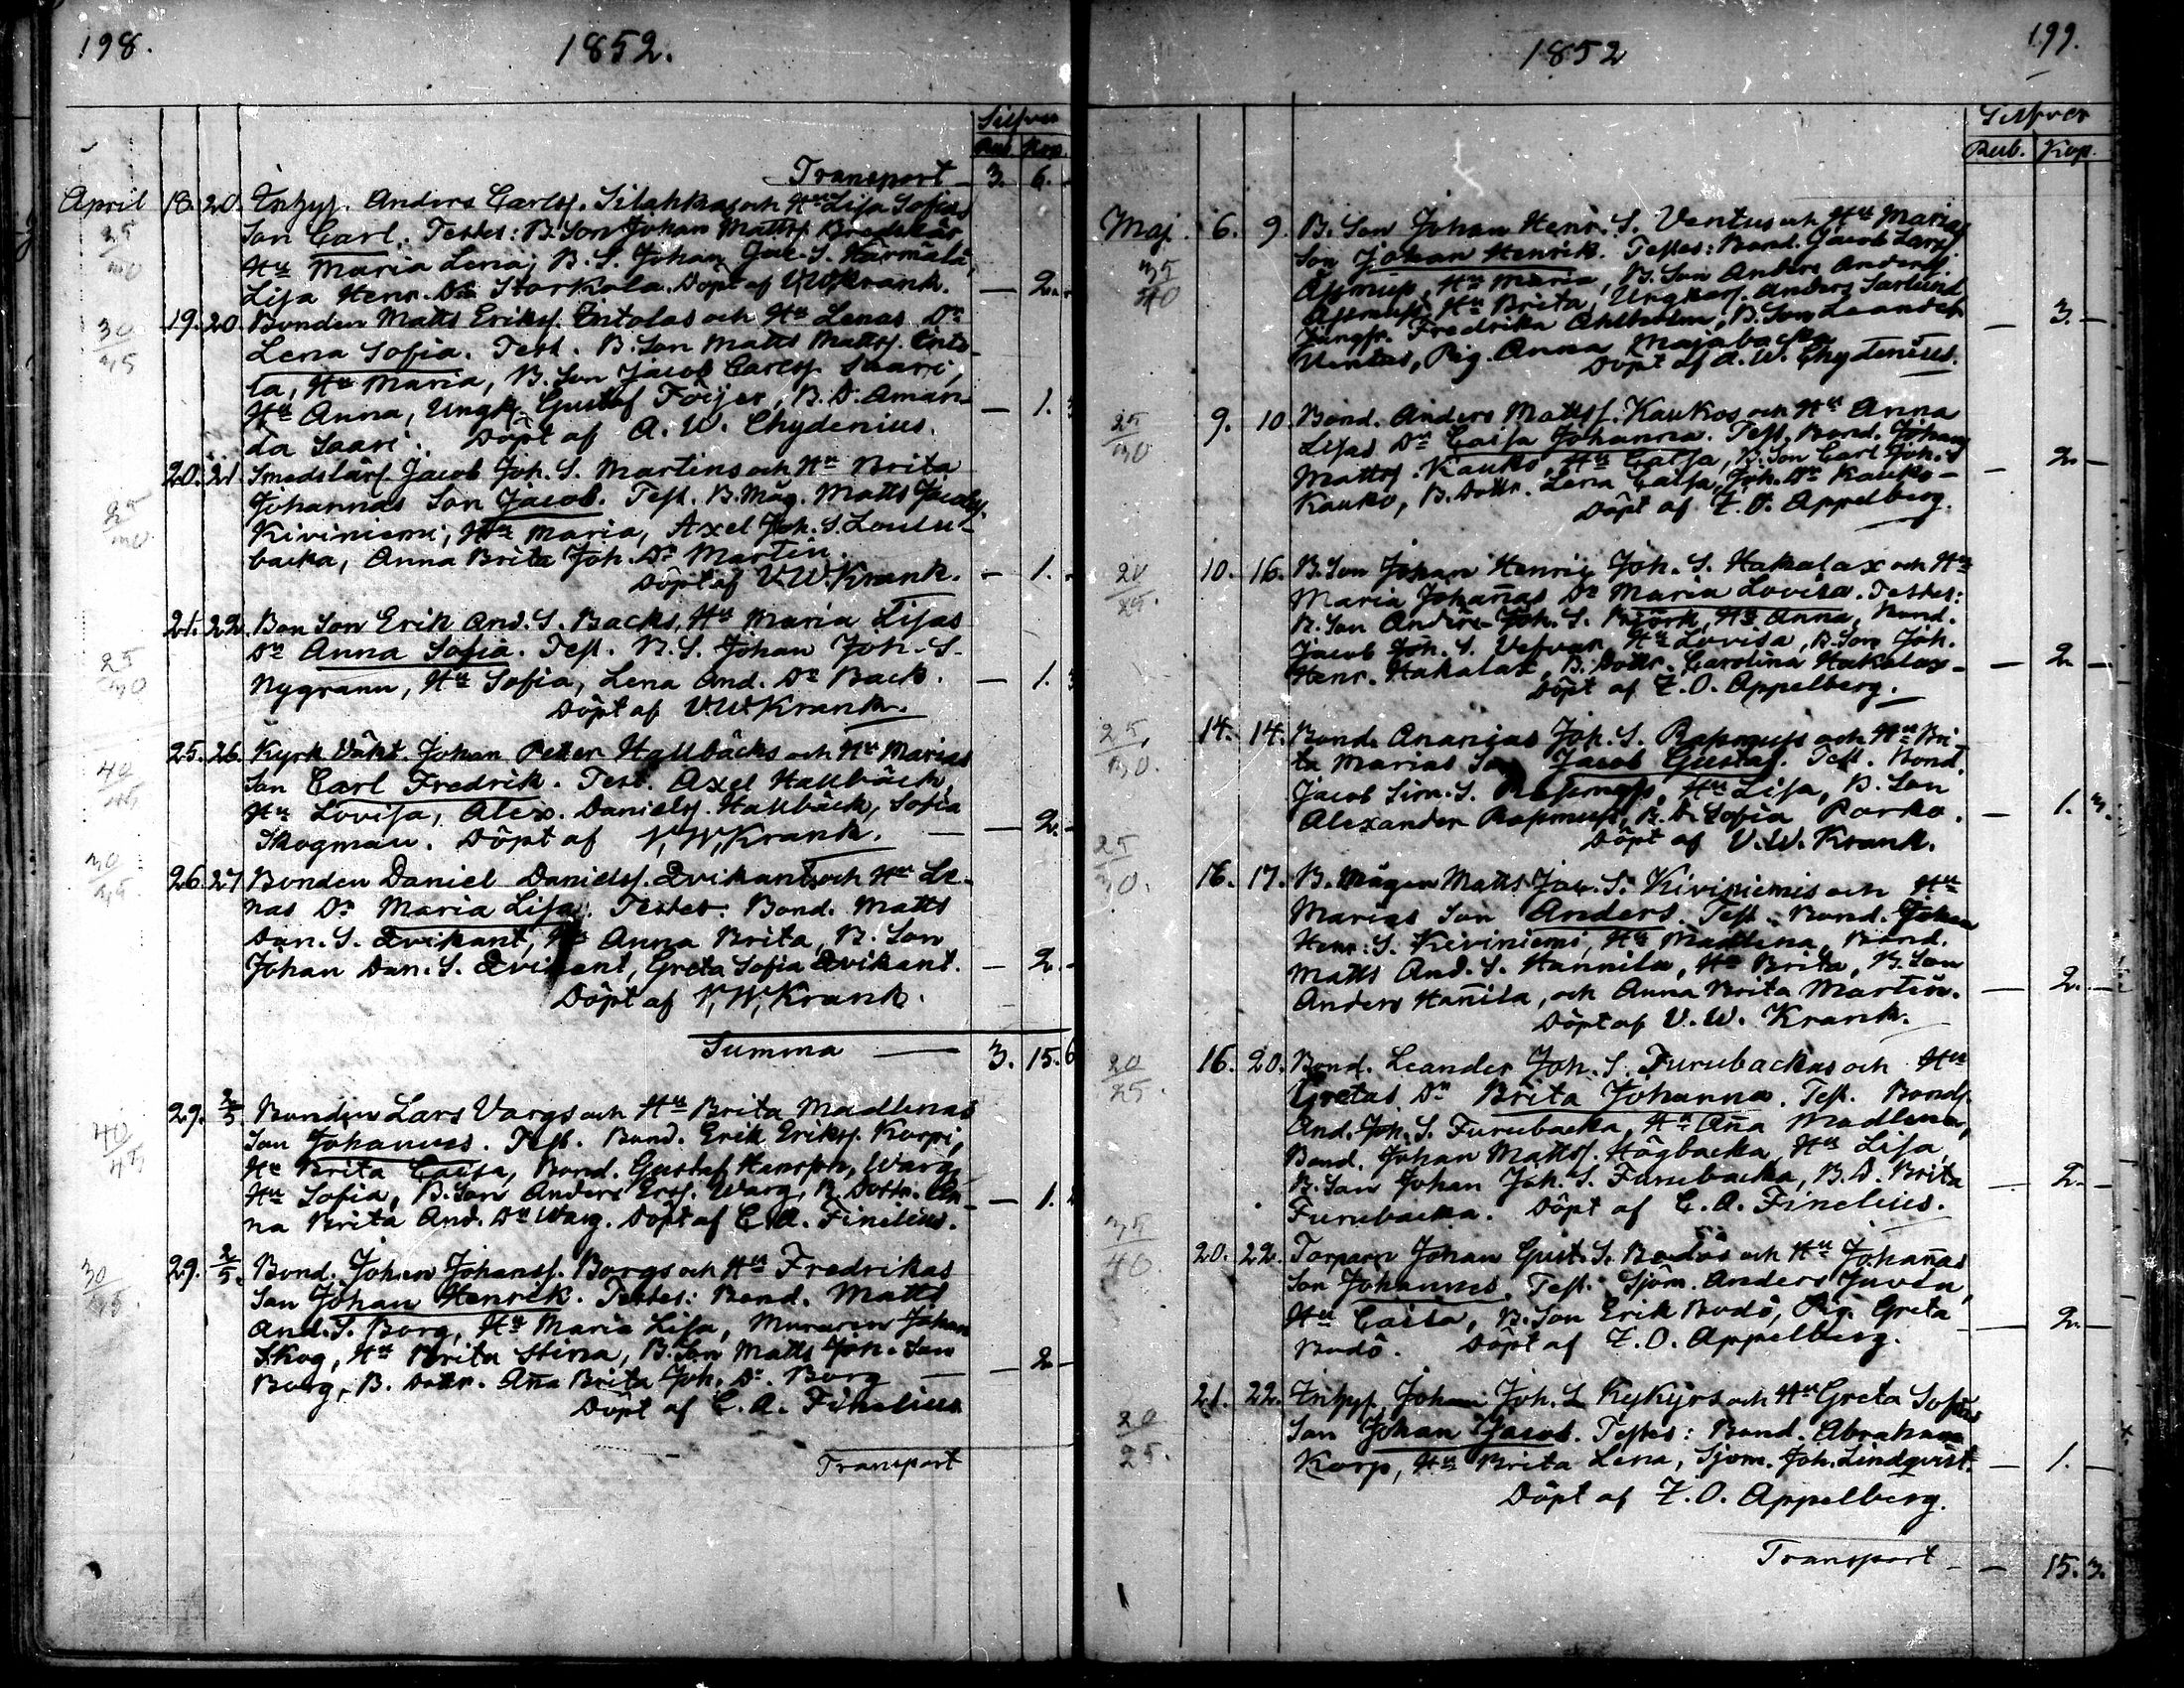 198.
1852.
Silfver
Rub. Kop.
Transport 3. 6.
April 18. 20. Inhys. Anders Carlss. Silahkas och Hu Lisa Sofias
25/30 Son Carl. Testes: B. Son Johan Mattss. Bredskär
Hu Maria Lena; B. S. Johan Jac. S. Härmälä,
Lisa Henr. Dr Storkola. Döpt af V.W. Krank. — 2. —
30/35 19. 20. Bonden Matts Erikss. Entolas och Hu Lenas Dr
Lena Sofia. Test. B. Son Matts Mattss. Ento-
la, Hu Maria, B. Son Jacob Carlss. Saari,
Hu Anna, Ungk. Gustaf Föijer, B. D. Aman- — 1. 3
da Saari. Döpt af A. W. Chydenius.
25/30 20. 21. Smedslärl. Jacob Joh. S. Martins och Hu Brita
Johannas Son Jacob. Test. B. Måg. Matts Jacobss.
Kiviniemi, Hu Maria, Axel Joh. S. Loulu-
backa, Anna Brita Joh. Dr Martin.
Döpt af V.W. Krank. — 1. —
25/30 21. 22. Bon Son Erik And. S. Backs, Hu Maria Lisas
Dr Anna Sofia. Test. B. S. Johan Joh. S.
Nygrann, Hu Sofia, Lena And. Dr Back. — 1. 3
Döpt af V.W. Krank.
40/45 25. 26. Kyrk Väkt. Johan Petter Hallbäcks och Hu Marias
Son Carl Fredrik. Test. Axel Hallbäck,
Hu Lovisa, Alex. Danielss. Hallbäck, Sofia
Skogman. Döpt af V.W. Krank. — 2. —
30/35 26. 27. Bonden Daniel Danielss. Qvikants och Hu Le-
nas Dr Maria Lisa. Testes: Bond. Matts
Dan. S. Qvikant, Hu Anna Brita, B. Son
Johan Dan. S. Qvikant, Greta Sofia Qvikant. — 2. —
Döpt af V.W. Krank.
Summa — 3. 15. 6
40/45 29. 2/5. Bonden Lars Vargs och Hu Brita Madlenas
Son Johannes. Test. Bond. Erik Erikss. Korpi,
Hu Brita Caisa, Bond. Gustaf Hansson, Warg,
Hu Sofia, B. Son Anders Erss. Warg, B. Dottr. An- — 1.
na Brita And. Dr Warg. Döpt af C. A. Finelius.
30/35. 29. 2/5. Bond. Johan Johanss. Borgs och Hu Fredrikas
Son Johan Henrik. Testes: Bond. Matts
And. S. Borg, Hu Maria Lisa, Muraren Johan
Skog, Hu Brita Stina, B. Son Matts Joh. Son
Borg, B. Dottr. Ana Brita Joh. Dr. Borg — — 2 —
Döpt af C. A. Finelius
Transport
199.
1852
Silfver
Rub. Kop.
Maj. 6. 9. B. Son Johan Henr. S. Ventus och Hu Marias
35/40 Son Johan Henrik. Testes: Bond. Jacob Larss.
Åsmus, Hu Maria, B. Son Anders Anderss.
Åsmus, Hu Brita, Ungkarl. Anders Sarlund
Jungfr. Fredrika Ahlholm, B. Son Leander — 3. —
Ventus, Pig. Anna Majabacka
Döpt af A. W. Chydenius.
25/30 9. 10. Bond. Anders Mattss. Kaukos och Hu Anna
Lisas Dr Caisa Johanna. Test. Bond. Johan
Mattss. Kauko, Hu Caisa, B. Son Carl Joh. S — 2. —
Kauko, B. Dottr. Lena Caisa Joh. Dr Kauko —
Döpt af Z. O. Appelberg.
20/25. 10. 16. B. Son Johan Henric Joh. S. Hakalax och Hu
Maria Johanas Dr Maria Lovisa. Testes:
B. Son Anders Joh. S. Björk, Hu Anna, Bond.
Jacob Joh. S. Vefvar, Hu Lovisa, B. Son Joh.
Henr. Hakalax, B. Dottr. Carolina Hakalax — — 2 —
Döpt af Z. O. Appelberg.
25/30. 14. 14. Bond. Ananias Joh. S. Rasmuss och Hu Bri-
ta Marias Son Jacob Gustaf. Test. Bond.
Jacob Sim. S. Rasmuss, Hu Lisa, B. Son
Alexander Rasmuss, B. D. Sofia Porko. — 1. 3.
Döpt af V. W. Krank.
25/30. 16. 17. B. Mågen Matts Jac. S. Kiviniemis och Hu
Marias Son Anders. Test. Bond. Johan
Henr. S. Kiviniemi, Hu Madlena, Bond.
Matts And. S. Hannila, Hu Brita, B. Son
Anders Hanila, och Anna Brita Martin. — 2. —
Döpt af V. W. Krank.
20/25. 16. 20. Bond. Leander Joh. S. Furubackas och Hu
Gretas Dr Brita Johanna. Test. Bond.
And. Joh. S. Furubacka, Hu Ana Madlena,
Bond. Johan Mattss. Högbacka, Hu Lisa,
B. Son Johan Joh. S. Furubacka, B. D. Brita — 2. —
Furubacka. Döpt af C. A. Finelius.
35/40. 20. 22. Torparn Johan Gust. S. Bodös och Hu Johanas
Son Johannes. Test. Sjöm. Anders Juvla,
Hu Caisa, B. Son Erik Bodö, Pig. Greta — 2. —
Bodö. Döpt af Z. O. Appelberg.
20/25. 21. 22. Inhys. Johan Joh. S. Kykyrs och Hu Greta Sofias
Son Johan Jacob. Testes: Bond. Abraham
Korp, Hu Brita Lena, Sjöm. Joh. Lindqvist. — 1. —
Döpt af Z. O. Appelberg.
Transport — — 15. 3.